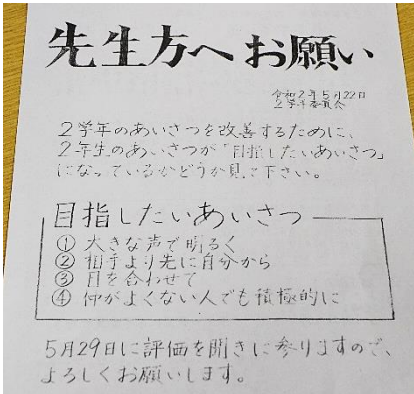 先生方へお願い
令和2年5月22日
2学年委員会
2学年のあいさつを改善するために、
2年生のあいさつが「目指したいあいさつ」
になっているかどうか見て下さい。
目指したいあいさつ
① 大きな声で明るく
② 相手より先に自分から
③ 目を合わせて
④ 仲がよくない人でも積極的に
5月29日に評価を聞きに参りますので、
よろしくお願いします。